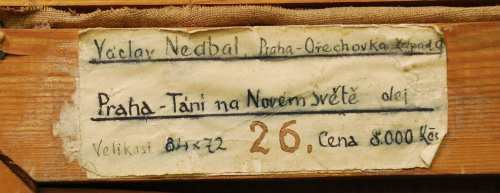 Václav Nedbal, Praha-Ořechovka západ
Praha - Tání na Novém světě olej
Velikost 84x72 26. Cena 8.000 Kčs